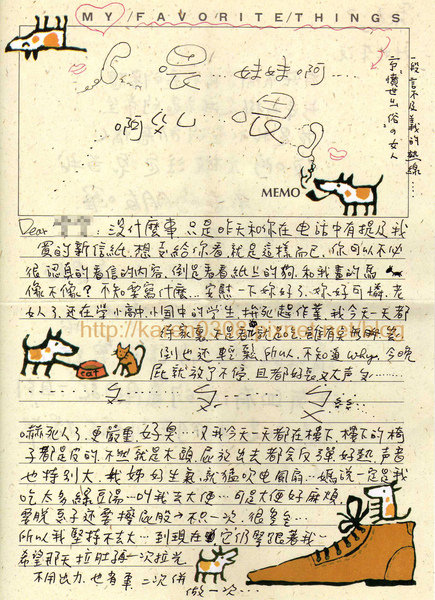 MY/FAVORITE/THINGS
喂…妹妹啊…
啊幺 喂
一段言不及義的熱線……
一憤世出俗的女人
MEMO
Dear：沒什麼事，只是昨天和你在電話中有提及我
買的新信紙，想要給你看就是這樣而已，你可以不必
很認真的看信的內容，倒是看看紙上的狗，和我畫的馬
像不像？不知要寫什麼…安慰一下妳好了，妳好可憐，老
女人了，還在學小高中小國中的學生拚死趕作業，我今天一天都
http://karen0398
倒也還輕鬆，所以不知道why，今晚
屁就放了不停，且都好長又大聲ㄅ……
cat
ㄅ ㄅ ㄅ
嚇死人了，更嚴重，好臭…又我今天一天都在樓下，樓下的椅
子都是皮的，不然就是木頭，屁放出去都会反彈好熱，聲音
也特別大，我姊好生氣，就猛吹電風扇…媽說一定是我
吃太多綠豆湯…叫我去大便…可是大便好麻煩
要脫褲子還要擦屁股→不只一次，很多次…
所以我堅持不去大…到現在它仍緊跟著我~
希望那天拉肚再一次拉光
不用出力，也省事，二次併
做一次…